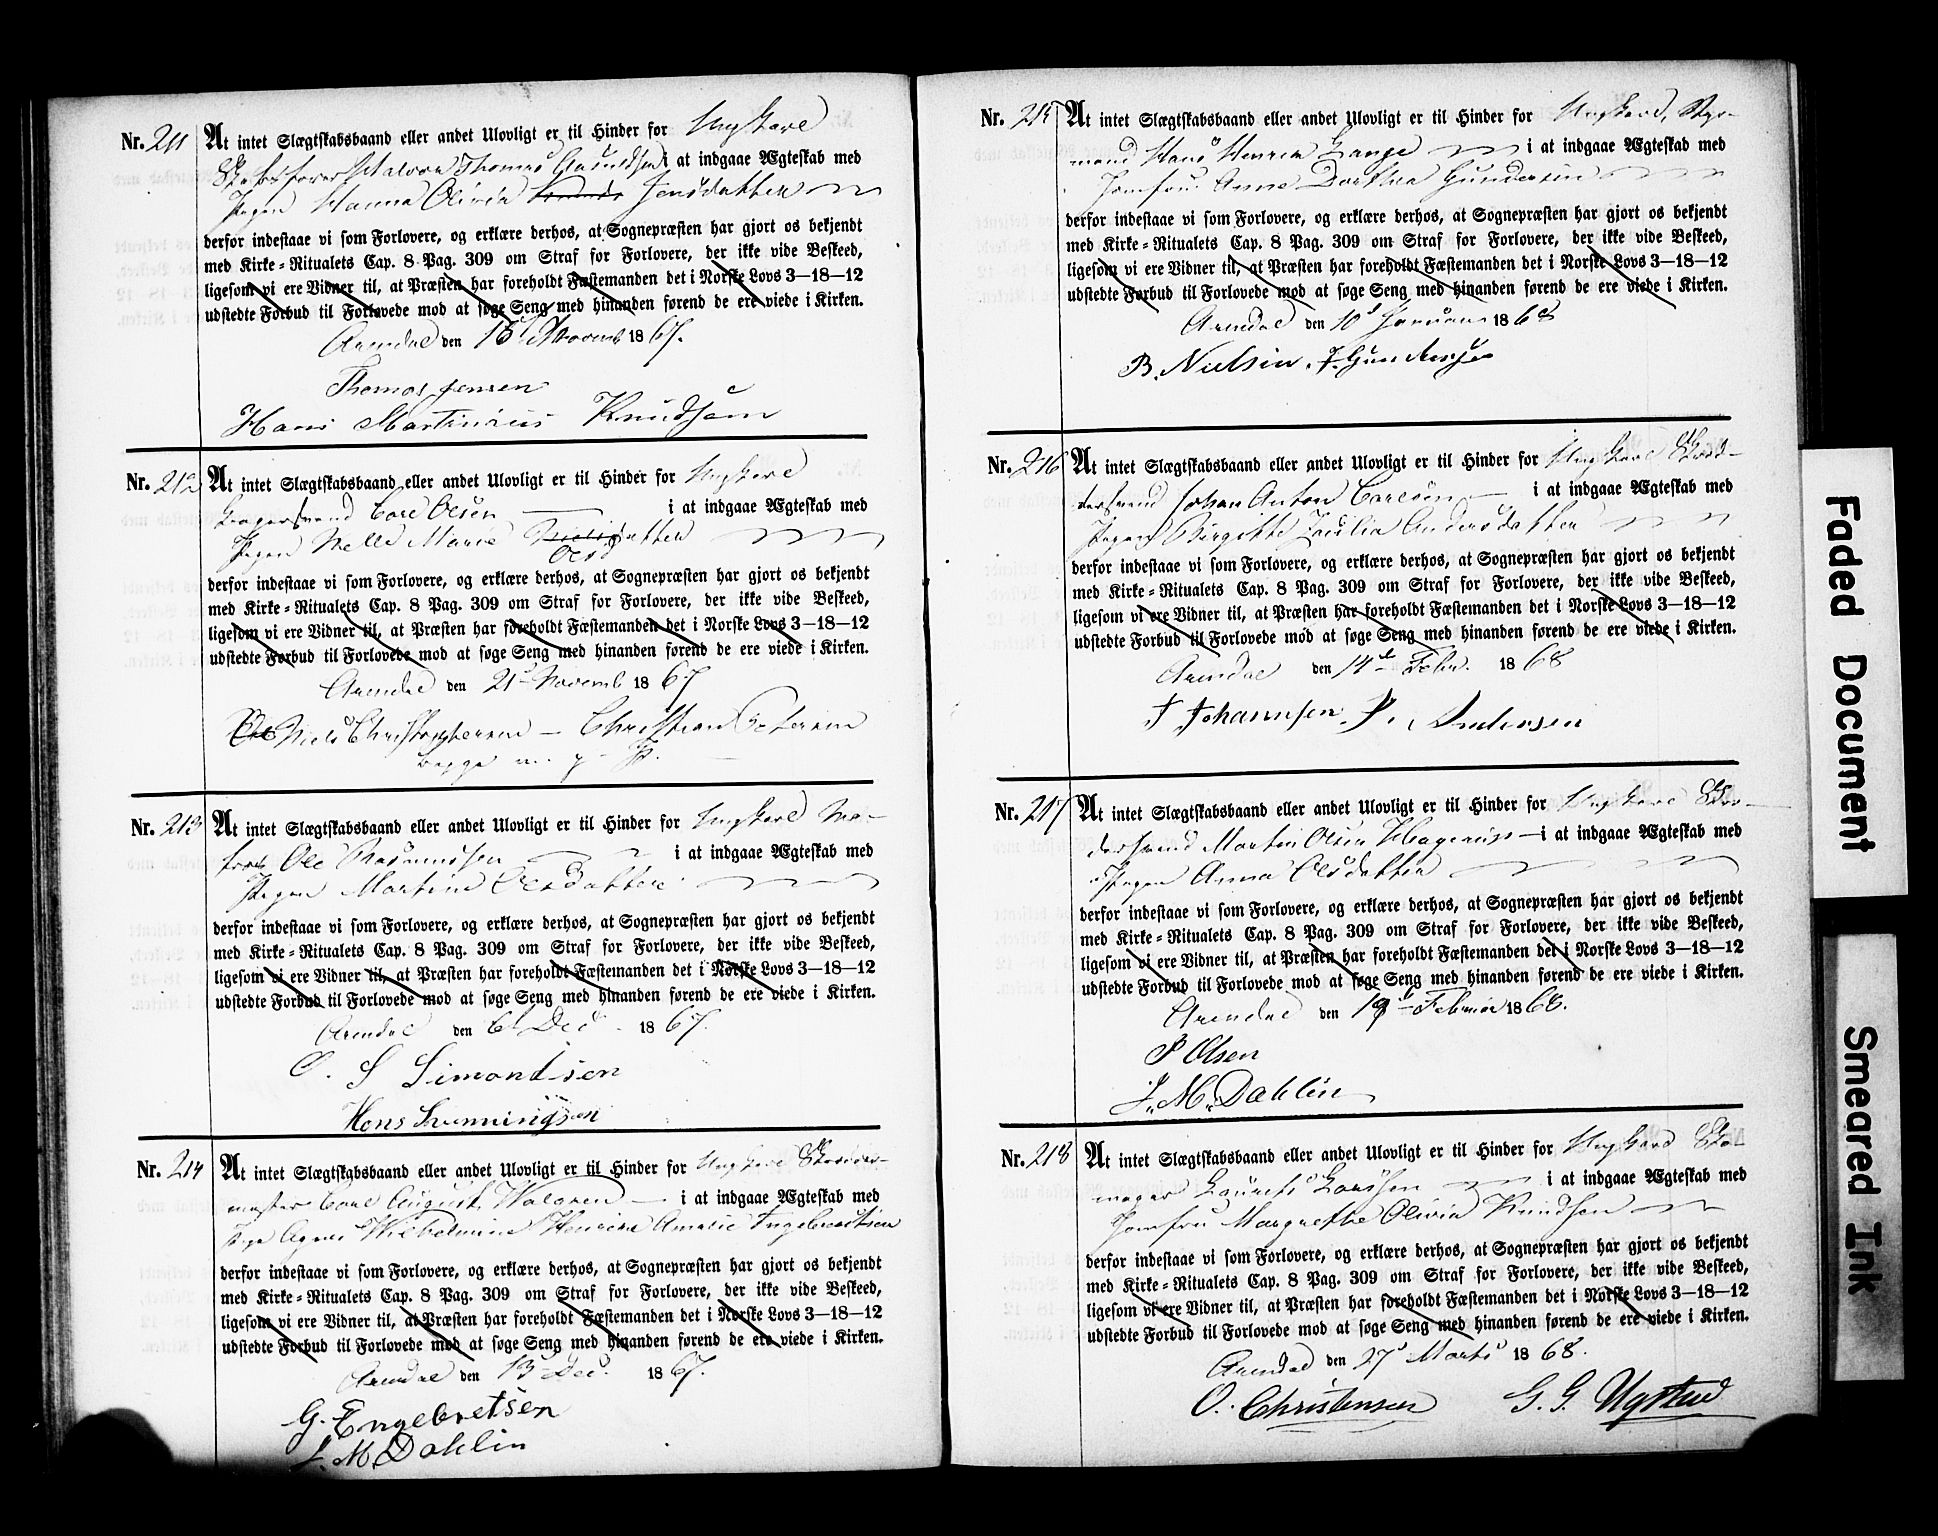 Nr. 211 At intet Slægtskabsbaand eller andet Ulovligt er til Hinder for Ungkarl
Halvor Thomas Knudsen i at indgaae Ægteskab med
Pigen Hanna Olivia Jensdatter
derfor indestaae vi som Forlovere, og erklære derhos, at Sognepræsten har gjort os bekjendt
med Kirke-Ritualets Cap. 8 Pag. 309 om Straf for Forlovere, der ikke vide Beskeed,
ligesom vi ere Vidner til, at Præsten har foreholdt Fæstemanden det i Norske Lovs 3—18—12
udstedte Forbud til Forlovede mod at søge Seng med hinanden førend de ere viede i Kirken.
Arendal den 15 Novemb 1867.
Thomas Jensen
Hans Martinius Knudsen
Nr. 212 At intet Slægtskabsbaand eller andet Ulovligt er til Hinder for Ungkarl
Carl Olsen i at indgaae Ægteskab med
Pigen Nelle Marie Olsdatter
derfor indestaae vi som Forlovere, og erklære derhos, at Sognepræsten har gjort os bekjendt
med Kirke-Ritualets Cap. 8 Pag. 309 om Straf for Forlovere, der ikke vide Beskeed,
ligesom vi ere Vidner til, at Præsten har foreholdt Fæstemanden det i Norske Lovs 3—18—12
udstedte Forbud til Forlovede mod at søge Seng med hinanden førend de ere viede i Kirken.
Arendal den 21 Novemb 1867
Niels Christophersen — Christian Petersen
begge m. p. P.
Nr. 213 At intet Slægtskabsbaand eller andet Ulovligt er til Hinder for Ungkarl Ma-
tros Ole Rasmussen i at indgaae Ægteskab med
Pigen Martine Olsdatter
derfor indestaae vi som Forlovere, og erklære derhos, at Sognepræsten har gjort os bekjendt
med Kirke-Ritualets Cap. 8 Pag. 309 om Straf for Forlovere, der ikke vide Beskeed,
ligesom vi ere Vidner til, at Præsten har foreholdt Fæstemanden det i Norske Lovs 3—18—12
udstedte Forbud til Forlovede mod at søge Seng med hinanden førend de ere viede i Kirken.
Arendal den 6 Dec 1867.
O. S Simondsen
Hans
Nr. 214 At intet Slægtskabsbaand eller andet Ulovligt er til Hinder for Ungkarl Skrædder-
mester Carl August Walgren — i at indgaae Ægteskab med
Pige Agnes Wilhelmine Henrica Amalie Engebretsen
derfor indestaae vi som Forlovere, og erklære derhos, at Sognepræsten har gjort os bekjendt
med Kirke-Ritualets Cap. 8 Pag. 309 om Straf for Forlovere, der ikke vide Beskeed,
ligesom vi ere Vidner til, at Præsten har foreholdt Fæstemanden det i Norske Lovs 3—18—12
udstedte Forbud til Forlovede mod at søge Seng med hinanden førend de ere viede i Kirken.
Arendal den 13 Dec. 1867.
G. Engebretsen
L. M. Dahlin
Nr. 215 At intet Slægtskabsbaand eller andet Ulovligt er til Hinder for Ungkarl, Styr-
mand Hans Henrik Lange i at indgaae Ægteskab med
Jomfru Anne Dorthea Gundersen
derfor indestaae vi som Forlovere, og erklære derhos, at Sognepræsten har gjort os bekjendt
med Kirke-Ritualets Cap. 8 Pag. 309 om Straf for Forlovere, der ikke vide Beskeed,
ligesom vi ere Vidner til, at Præsten har foreholdt Fæstemanden det i Norske Lovs 3—18—12
udstedte Forbud til Forlovede mod at søge Seng med hinanden førend de ere viede i Kirken.
Arendal den 10 Januar 1868
B. Nielsen. J. Gundersen
Nr. 216 At intet Slægtskabsbaand eller andet Ulovligt er til Hinder for Ungkarl Skræd-
dersvend Johan Anton Carlsen — i at indgaae Ægteskab med
Pigen Birgitte Andersdatter
derfor indestaae vi som Forlovere, og erklære derhos, at Sognepræsten har gjort os bekjendt
med Kirke-Ritualets Cap. 8 Pag. 309 om Straf for Forlovere, der ikke vide Beskeed,
ligesom vi ere Vidner til, at Præsten har foreholdt Fæstemanden det i Norske Lovs 3—18—12
udstedte Forbud til Forlovede mod at søge Seng med hinanden førend de ere viede i Kirken.
Arendal den 14 Febr. 1868
J Johannsen P. Andersen
Nr. 217 At intet Slægtskabsbaand eller andet Ulovligt er til Hinder for Ungkarl Skræ-
dersvend Martin Olsen — i at indgaae Ægteskab med
Pigen Anna Olsdatter
derfor indestaae vi som Forlovere, og erklære derhos, at Sognepræsten har gjort os bekjendt
med Kirke-Ritualets Cap. 8 Pag. 309 om Straf for Forlovere, der ikke vide Beskeed,
ligesom vi ere Vidner til, at Præsten har foreholdt Fæstemanden det i Norske Lovs 3—18—12
udstedte Forbud til Forlovede mod at søge Seng med hinanden førend de ere viede i Kirken.
Arendal den 19 Februar 1868.
P Olsen
L. M. Dahlin
Nr. 218 At intet Slægtskabsbaand eller andet Ulovligt er til Hinder for Ungkarl Sko-
mager Laurits Larssen i at indgaae Ægteskab med
Jomfru Margrethe Olivia Knudsen
derfor indestaae vi som Forlovere, og erklære derhos, at Sognepræsten har gjort os bekjendt
med Kirke-Ritualets Cap. 8 Pag. 309 om Straf for Forlovere, der ikke vide Beskeed,
ligesom vi ere Vidner til, at Præsten har foreholdt Fæstemanden det i Norske Lovs 3—18—12
udstedte Forbud til Forlovede mod at søge Seng med hinanden førend de ere viede i Kirken.
Arendal den 27 Marts 1868.
O. Christensen G. G. Ugstad
Faded Document
Smeared Ink